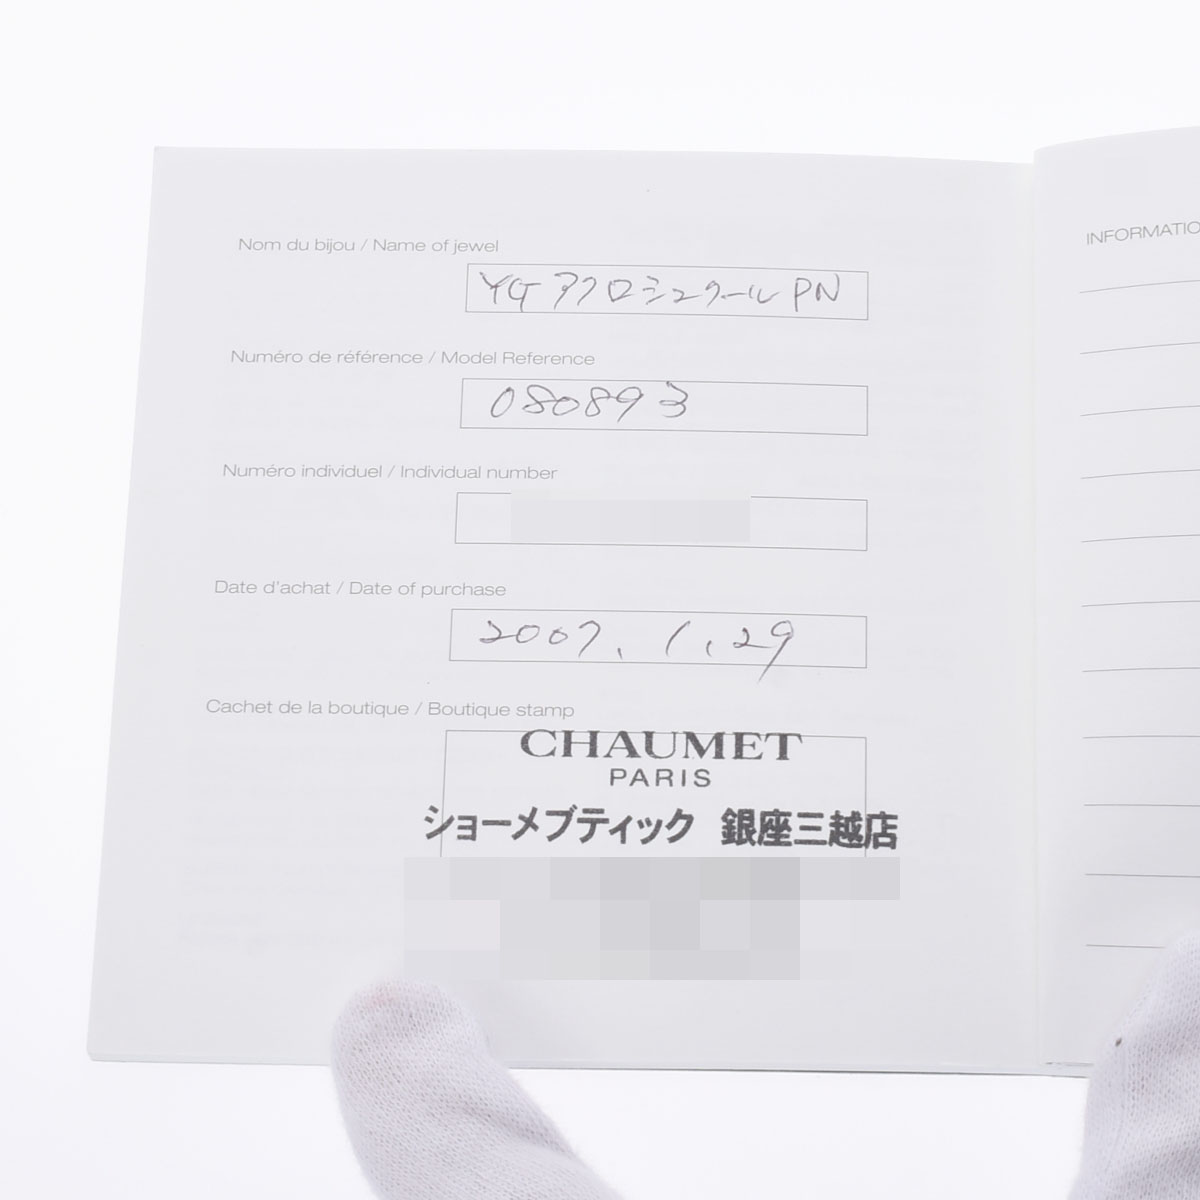 Nom du bijou / Name of jewel
YG アクロシュクール PN
Numéro de référence / Model Reference
080893
Numéro individuel / Individual number
Date d'achat / Date of purchase
2007. 1. 29
Cachet de la boutique / Boutique stamp
CHAUMET
PARIS
ショーメブティック 銀座三越店